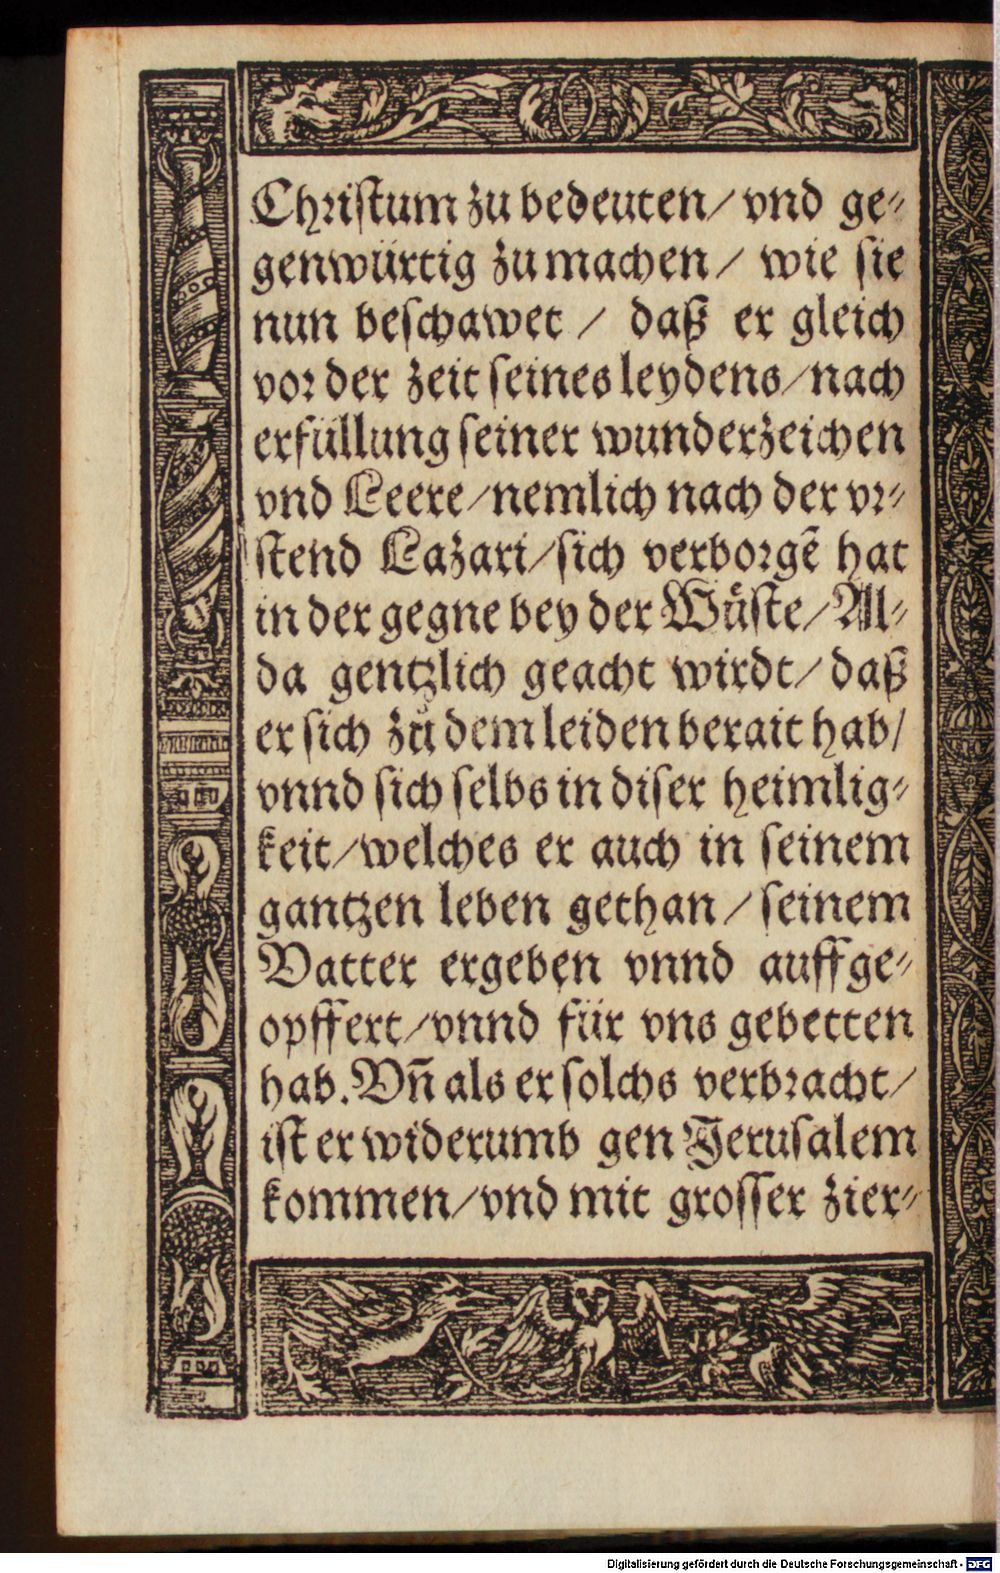 Chriſtum zu bedeuten/ vnd ge⸗
genwürtig zu machen/ wie ſie
nun beſchawet/ daß er gleich
vor der zeit ſeines leydens/ nach
erfüllung ſeiner wunderzeichen
vnd Leere/ nemlich nach der vr⸗
ſtend Lazari/ ſich verborgẽ hat
in der gegne bey der Wuͤſte/ Al⸗
da gentzlich geacht wirdt/ daß
er ſich zuͦ dem leiden berait hab/
vnnd ſich ſelbs in diſer heimlig⸗
keit/ welches er auch in ſeinem
gantzen leben gethan/ ſeinem
Vatter ergeben vnnd auffge⸗
opffert/ vnnd für vns gebetten
hab. Vñ als er ſolchs verbracht/
iſt er widerumb gen Jeruſalem
kommen/ vnd mit groſſer zier⸗
Digitalisierung gefördert durch die Deutsche Forschungsgemeinschaft - DFG